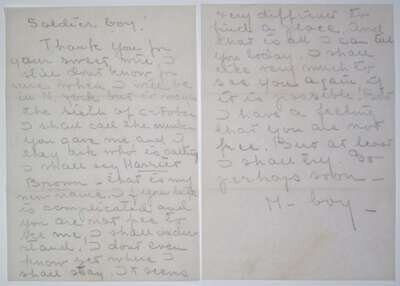 Soldier boy!
Thank you for
your sweet wire. I
still dont know for
sure when I will be
in N. York but it may be
the sixth of october
I shall call the number
you gave me and if
they ask who is calling
I shall say Harriet
Brown - that is my
new name. If your life
is complicated and
you are not free to
see me, I shall under
stand. I dont even
know yet where I
shall stay. It seems
very difficult to
find a place. And
that is all I can tell
you today. I shall
like very much to
see you again if
it is possible. But
I have a feeling
that you are not
free. But at least
I shall try. So
perhaps soon -
M - boy -